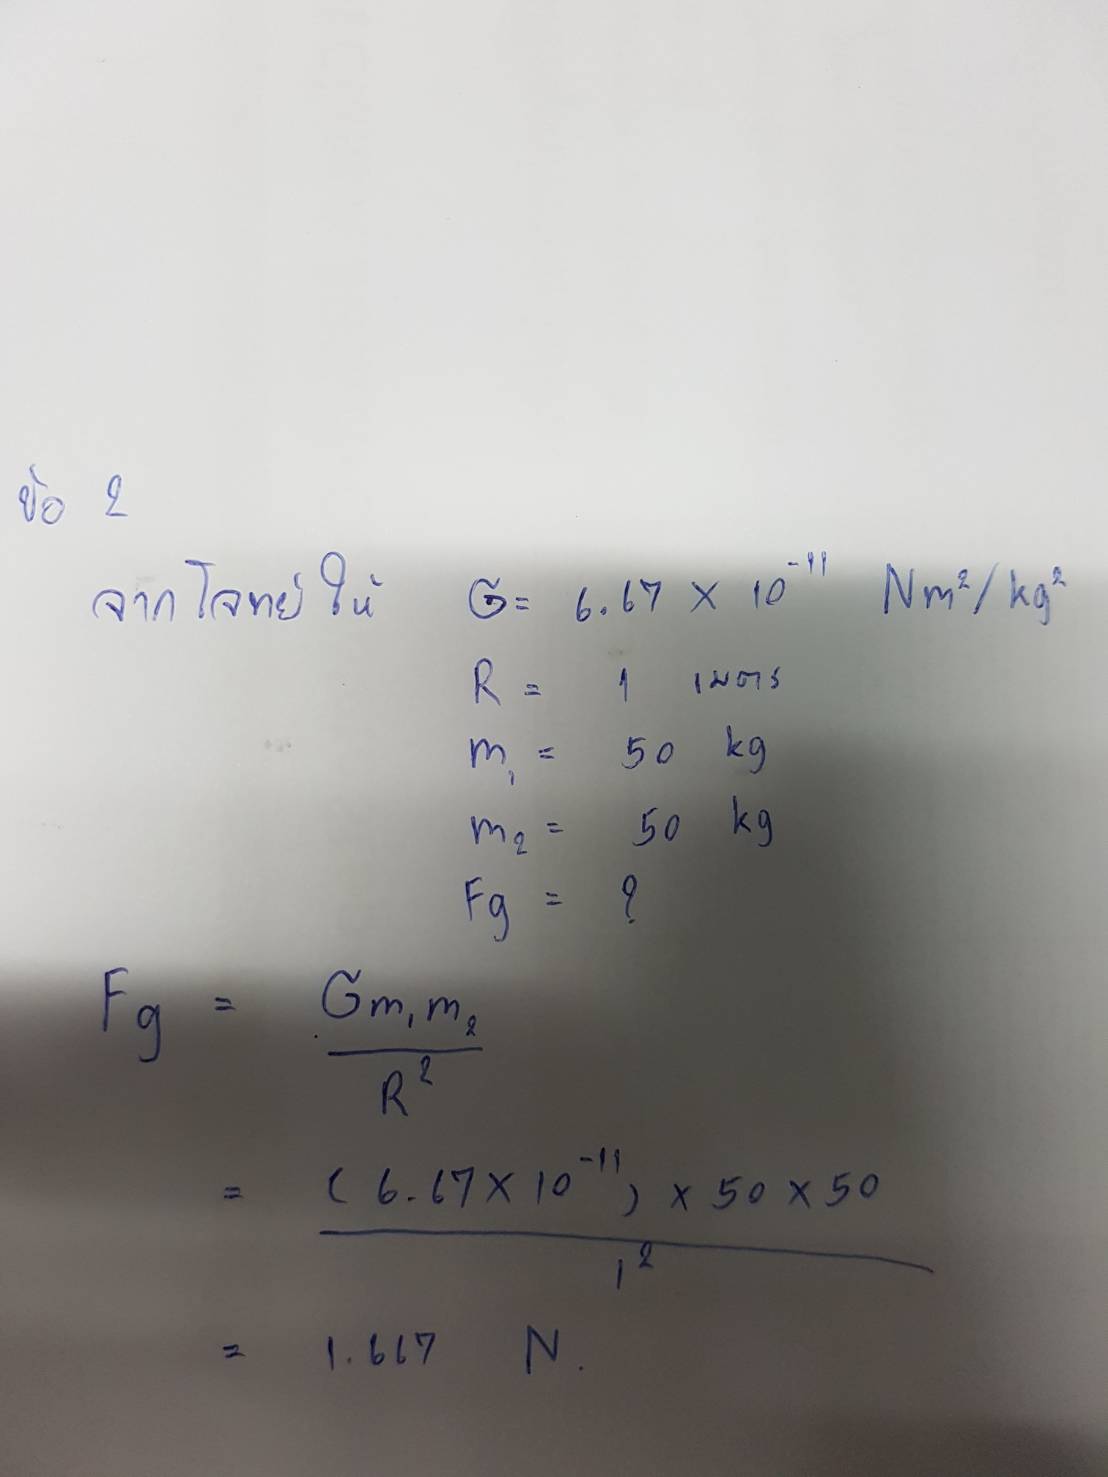 ข้อ 2
จากโจทย์ให้ G = 6.67 × 10⁻¹¹ Nm²/kg²
R = 1 เมตร
m₁ = 50 kg
m₂ = 50 kg
Fg = ?
Fg = Gm₁m₂
R²
= (6.67 × 10⁻¹¹) × 50 × 50
1²
= 1.667 N.